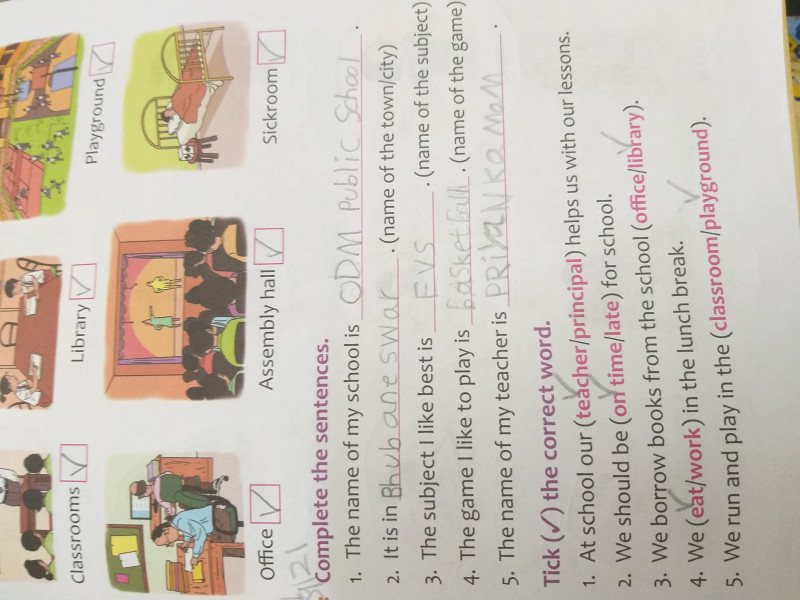 Playground ✓
Classrooms ✓
Library ✓
Office ✓
Assembly hall ✓
Sickroom ✓
Complete the sentences.
1. The name of my school is ODM Public School.
2. It is in Bhubaneswar. (name of the town/city)
3. The subject I like best is EVS. (name of the subject)
4. The game I like to play is Basketball. (name of the game)
5. The name of my teacher is PRiyaNKa MaM.
Tick (✓) the correct word.
1. At school our (teacher/principal) helps us with our lessons.
2. We should be (on time/late) for school.
3. We borrow books from the school (office/library).
4. We (eat/work) in the lunch break.
5. We run and play in the (classroom/playground).